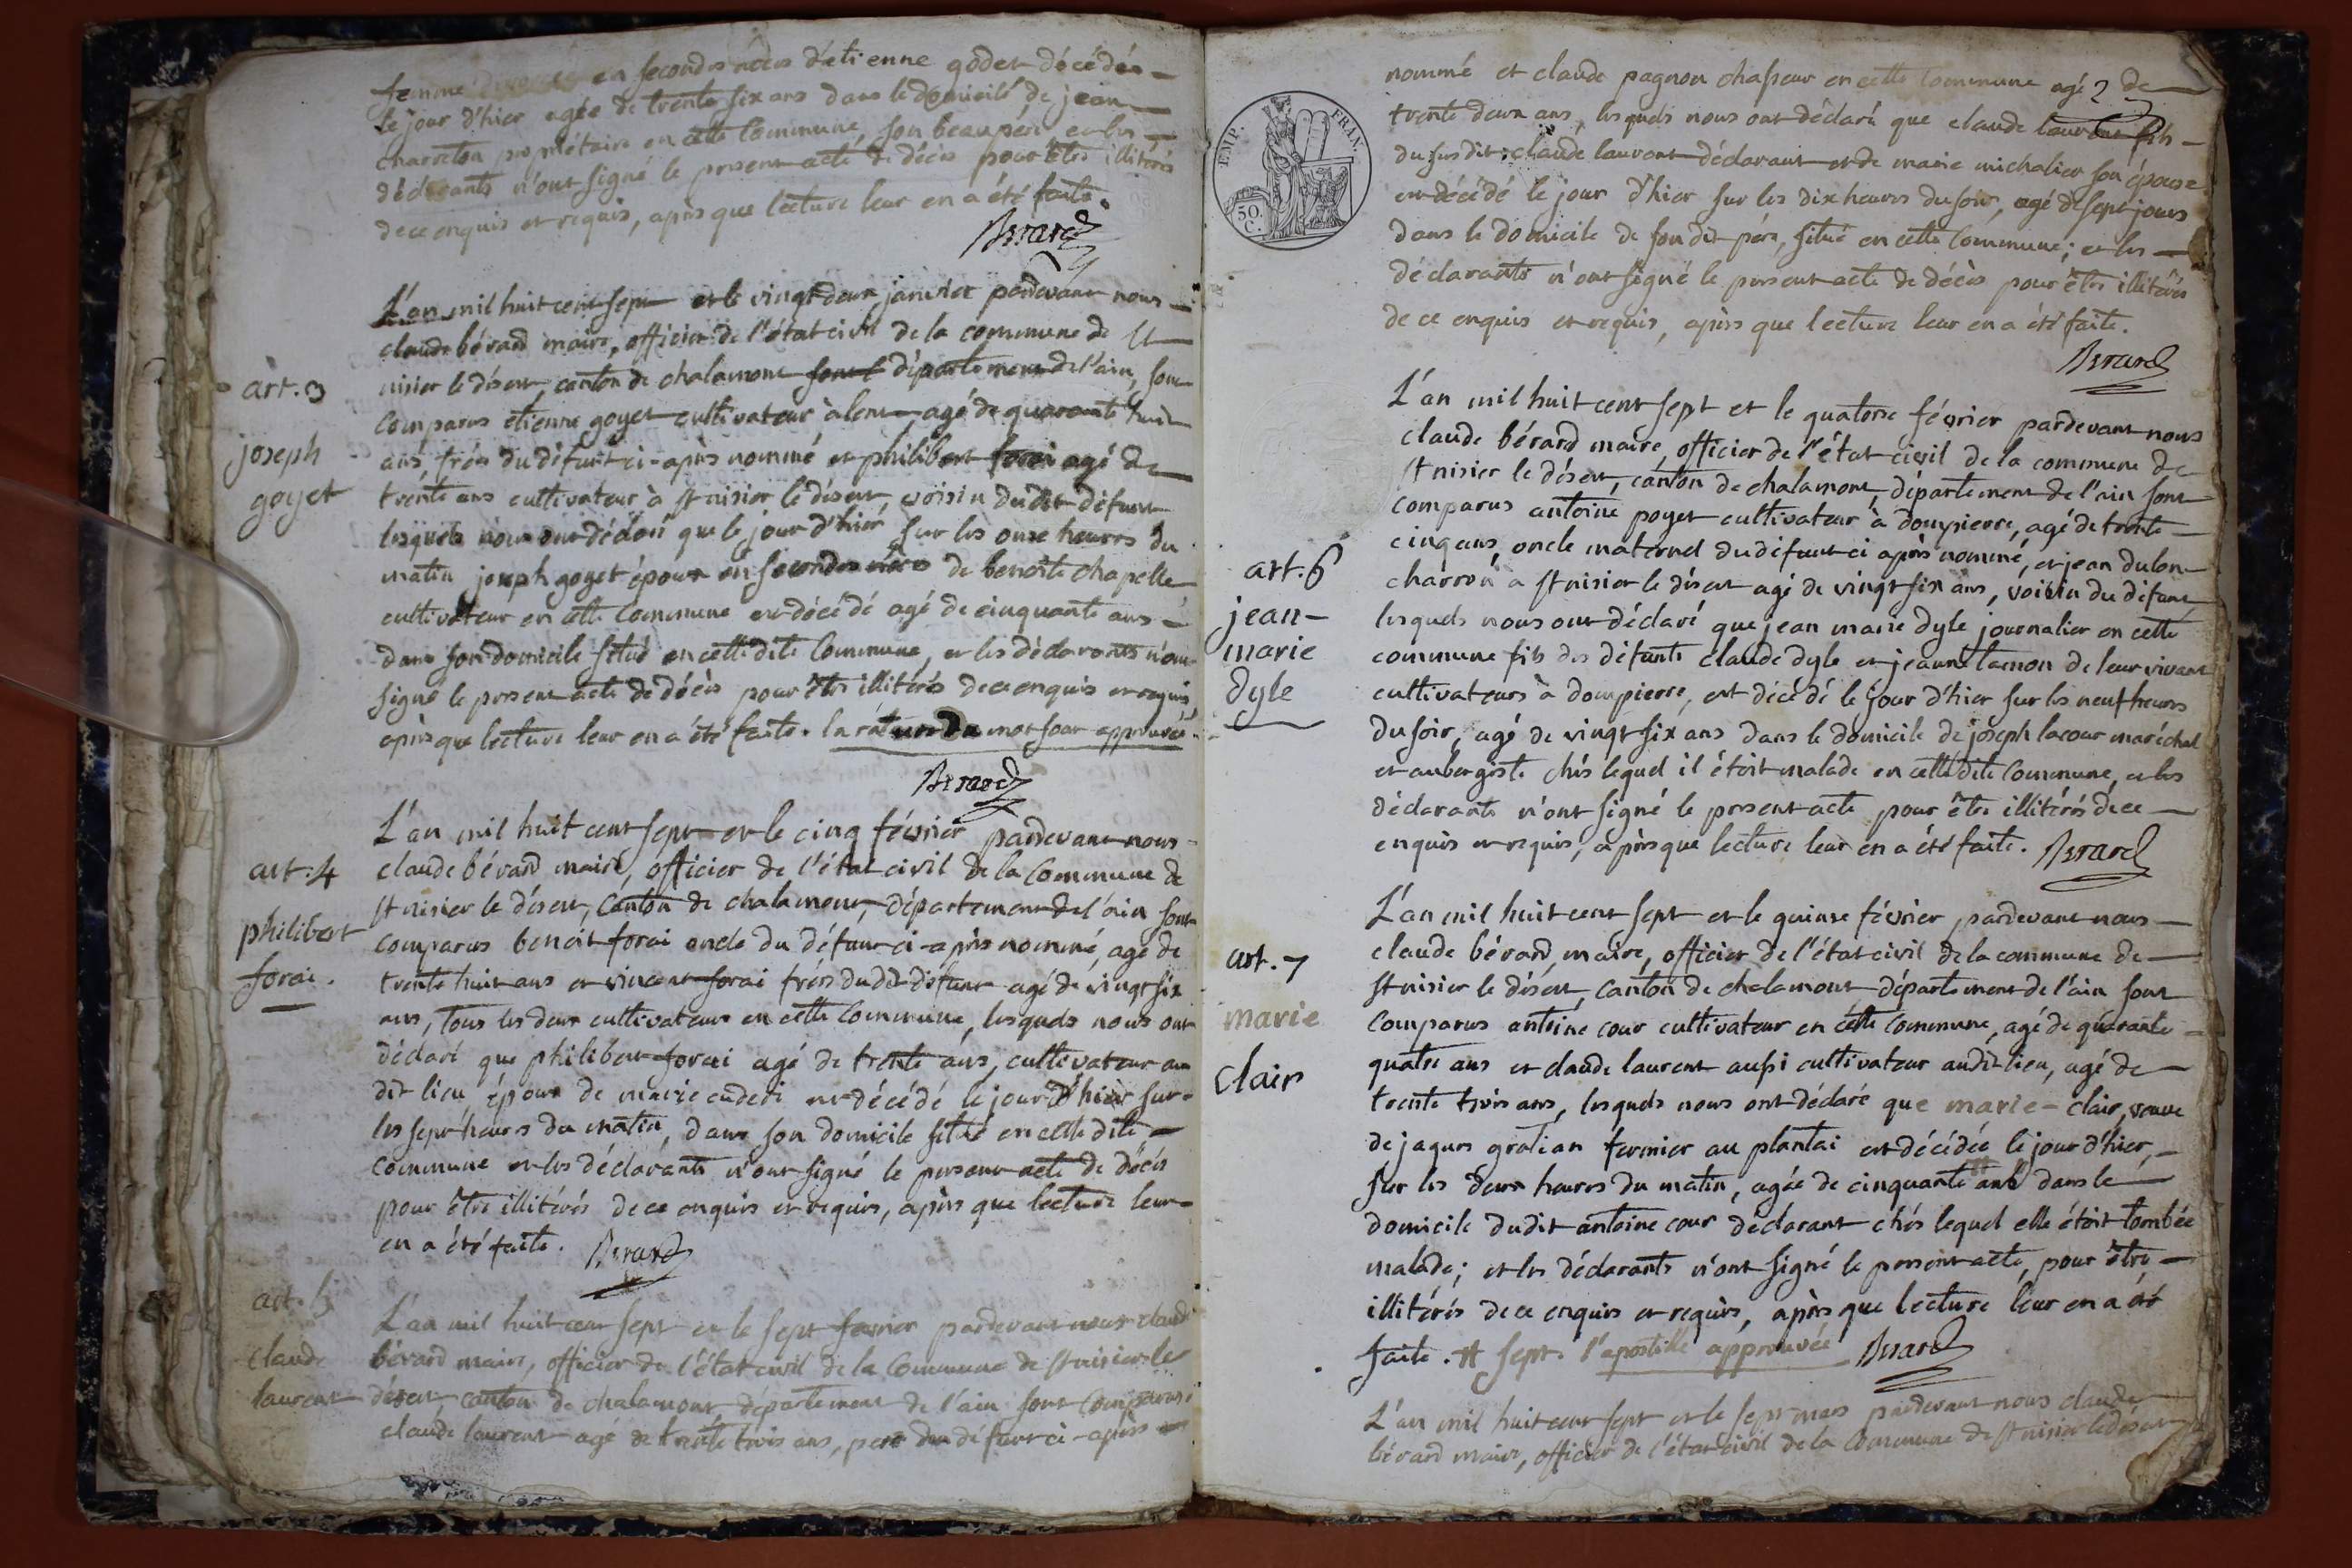 femme en secondes nôces d'étienne godet décédée
le jour d'hier agée de trente six ans dans le domicile de jean
charreton propriétaire en cette Commune, son beaupére et les
déclarants n'ont signé le present acte de décès pour être illitérés
de ce enquis et requis, après que lecture leur en a été faite.
Berard
L'an mil huit cent sept et le vingt deux janvier pardevant nous
claude bérard maire, officier de l'état civil de la commune de St
art. 3
nisier le désert, canton de chalamont département de l'ain, sont
comparus etienne goyet cultivateur à lent agé de quarante huit
joseph
ans, frére du défunt ci-après nommé et philibert forai agé de
goyet
trente ans cultivateur à st nisier le désert, voisin dudit défunt
lesquels nous ont déclaré que le jour d'hier sur les onze heures du
matin joseph goyet époux en secondes nôces de benoite chapelle
cultivateur en cette Commune est décédé agé de cinquante ans
dans son domicile situé en cette dite Commune, et les déclarants n'ont
signé le present acte de décès pour être illitérés de ce enquis et requis
après que lecture leur en a été faite. la rature du mot sont approuvée.
Berard
L'an mil huit cent sept et le cinq février pardevant nous
art. 4
claude bérard maire, officier de l'état civil de la Commune de
st nisier le désert, Canton de chalamont, département de l'ain sont
philibert
comparus benoit forai oncle du défunt ci-après nommé, agé de
forai.
trente huit ans et vincent forai frére dudit défunt agé de vingt six
ans, tous les deux cultivateurs en cette Commune, lesquels nous ont
déclaré que philibert forai agé de trente ans, cultivateur au
dit lieu époux de marie est décédé le jour d'hier sur
les sept heures du matin, dans son domicile situé en cette dite
Commune et les déclarants n'ont signé le present acte de décés
pour être illitérés de ce enquis et requis, après que lecture leur
en a été faite. Berard
art. 5
L'an mil huit cent sept et le sept fevrier pardevant nous claude
claude
bérard maire, officier de l'état civil de la Commune de st nisier le
laurent
désert, canton de chalamont, département de l'ain sont comparus
claude laurent agé de trente trois ans, pere du défunt ci-après
EMP. FRAN.
50. C.
nommé et claude pagnon chasseur en cette Commune agé de
trente deux ans, lesquels nous ont déclaré que claude laurent fils
du susdit claude laurent déclarant et de marie michalier son épouse
est décédé le jour d'hier sur les dix heures du soir, agé de sept jours
dans le domicile de son dit pére, situé en cette Commune; et les
déclarants n'ont signé le present acte de décès pour être illitérés
de ce enquis et requis, après que lecture leur en a été faite.
Berard
L'an mil huit cent sept et le quatorze février pardevant nous
claude bérard maire, officier de l'état civil de la commune de
st nisier le désert, canton de chalamont, département de l'ain sont
comparus antoine poyet cultivateur à dompierre, agé de trente
art. 6
cinq ans, oncle maternel du défunt ci après nommé, et jean dulon
charron a st nisier le désert agé de vingt six ans, voisin du défunt
jean-
lesquels nous ont déclaré que jean marie dyle journalier en cette
marie
commune fils des défunts claude dyle et jeanne lamon de leur vivant
dyle
cultivateurs à dompierre, est décédé le jour d'hier sur les neuf heures
du soir, agé de vingt six ans dans le domicile de joseph lacour maréchal
et aubergiste chés lequel il étoit malade en cette dite Commune, et les
déclarants n'ont signé le present acte pour être illitérés de ce
enquis et requis, après que lecture leur en a été faite. Berard
L'an mil huit cent sept et le quinze février pardevant nous
art. 7
claude bérard, maire, officier de l'état civil de la commune de
st nisier le désert, canton de chalamont département de l'ain sont
marie
Comparus antoine cour cultivateur en cette Commune, agé de quarante
quatre ans et claude laurent aussi cultivateur audit lieu, agé de
clair
trente trois ans, lesquels nous ont déclaré que marie-clair, veuve
de jaques gratian fermier au plantai est décédée le jour d'hier,
sur les deux heures du matin, agée de cinquante ans dans le
domicile dudit antoine cour déclarant chés lequel elle étoit tombée
malade; et les déclarants n'ont signé le present acte, pour être
illitérés de ce enquis et requis, après que lecture leur en a été
faite. # sept. l'apostille approuvée Berard
L'an mil huit cent sept et le sept mars pardevant nous claude
bérard maire, officier de l'état civil de la Commune de st nisier le désert